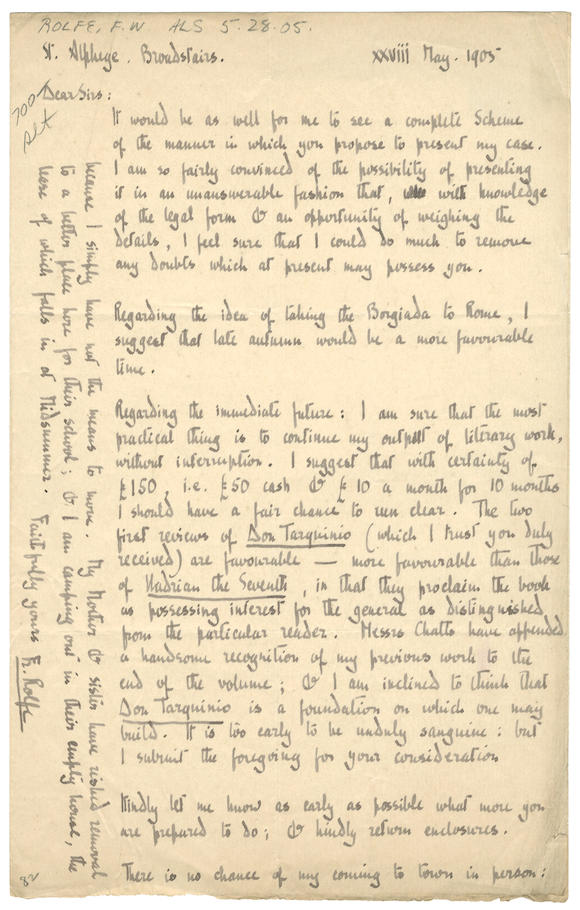 ROLFE, F.W ALS 5.28.05.
St. Alphege. Broadstairs. xxviii May. 1905
700-
Dear Sirs:
It would be as well for me to see a complete Scheme
of the manner in which you propose to present my case.
I am so fairly convinced of the possibility of presenting
it in an unanswerable fashion that, with knowledge
of the legal form & an opportunity of weighing the
details, I feel sure that I could do much to remove
any doubts which at present may possess you.
Regarding the idea of taking the Borgiada to Rome, I
suggest that late autumn would be a more favourable
time.
Regarding the immediate future: I am sure that the most
practical thing is to continue my output of literary work,
without interruption. I suggest that with certainty of
£150, i.e. £50 cash & £10 a month for 10 months
I should have a fair chance to run clear. The two
first reviews of Don Tarquinio (which I trust you duly
received) are favourable — more favourable than those
of Hadrian the Seventh, in that they proclaim the book
as possessing interest for the general as distinguished
from the particular reader. Messrs Chatts have appended
a handsome recognition of my previous work to the
end of the volume; & I am inclined to think that
Don Tarquinio is a foundation on which one may
build. It is too early to be unduly sanguine: but
I submit the foregoing for your consideration
Kindly let me know as early as possible what more you
are prepared to do; & kindly return enclosures.
There is no chance of my coming to town in person:
because I simply have not the means to move. My Mother & sister have risked removal
to a better place here for their school; & I am camping out in their empty house, the
lease of which falls in at Midsummer. Faithfully yours Fr. Rolfe